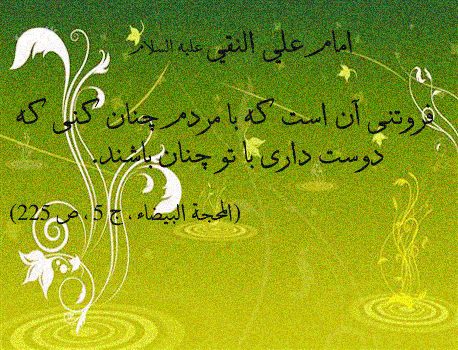 امام علي النقي عليه السلام
فروتنی آن است که با مردم چنان کنی که
دوست داری با تو چنان باشند.
(المحجة البيضاء ، ج 5 ، ص 225)